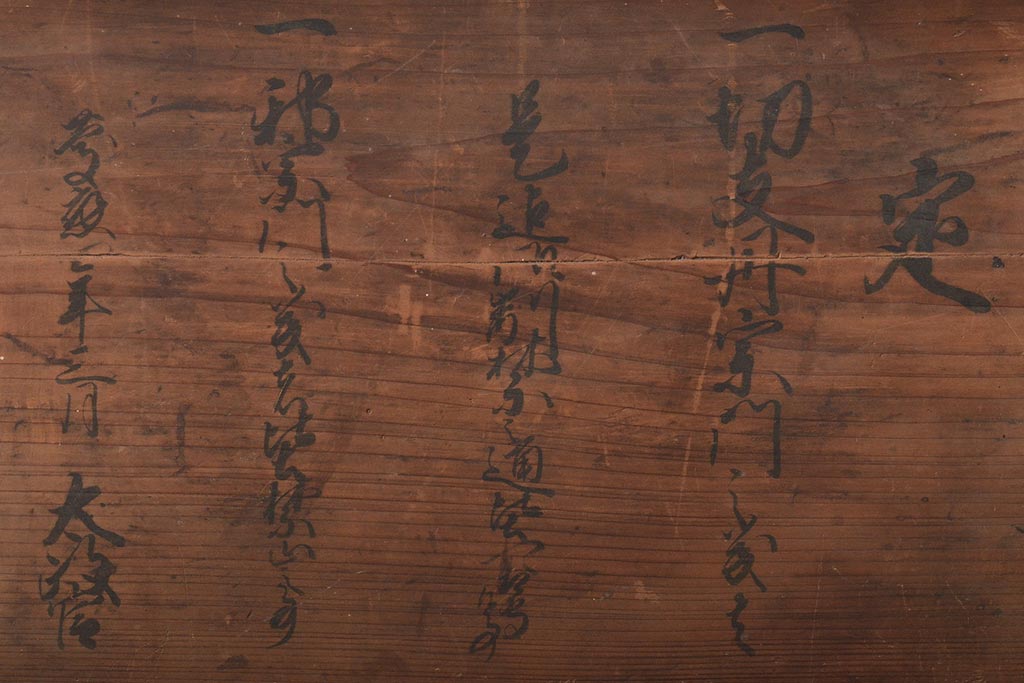 定
一切支丹宗門之義者
是迄御制禁之通固ク可相守事
一邪宗門之義者堅禁止之事
慶應四年三月 太政官